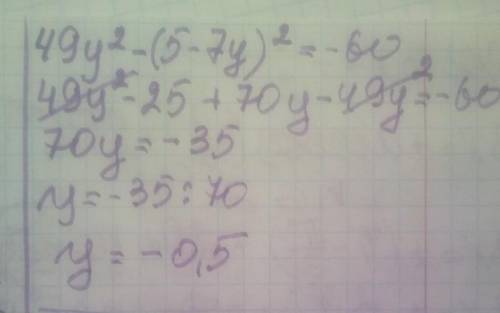 49y² - (5 - 7y)² = -60
49y² - 25 + 70y - 49y² = -60
70y = -35
y = -35 : 70
y = -0,5